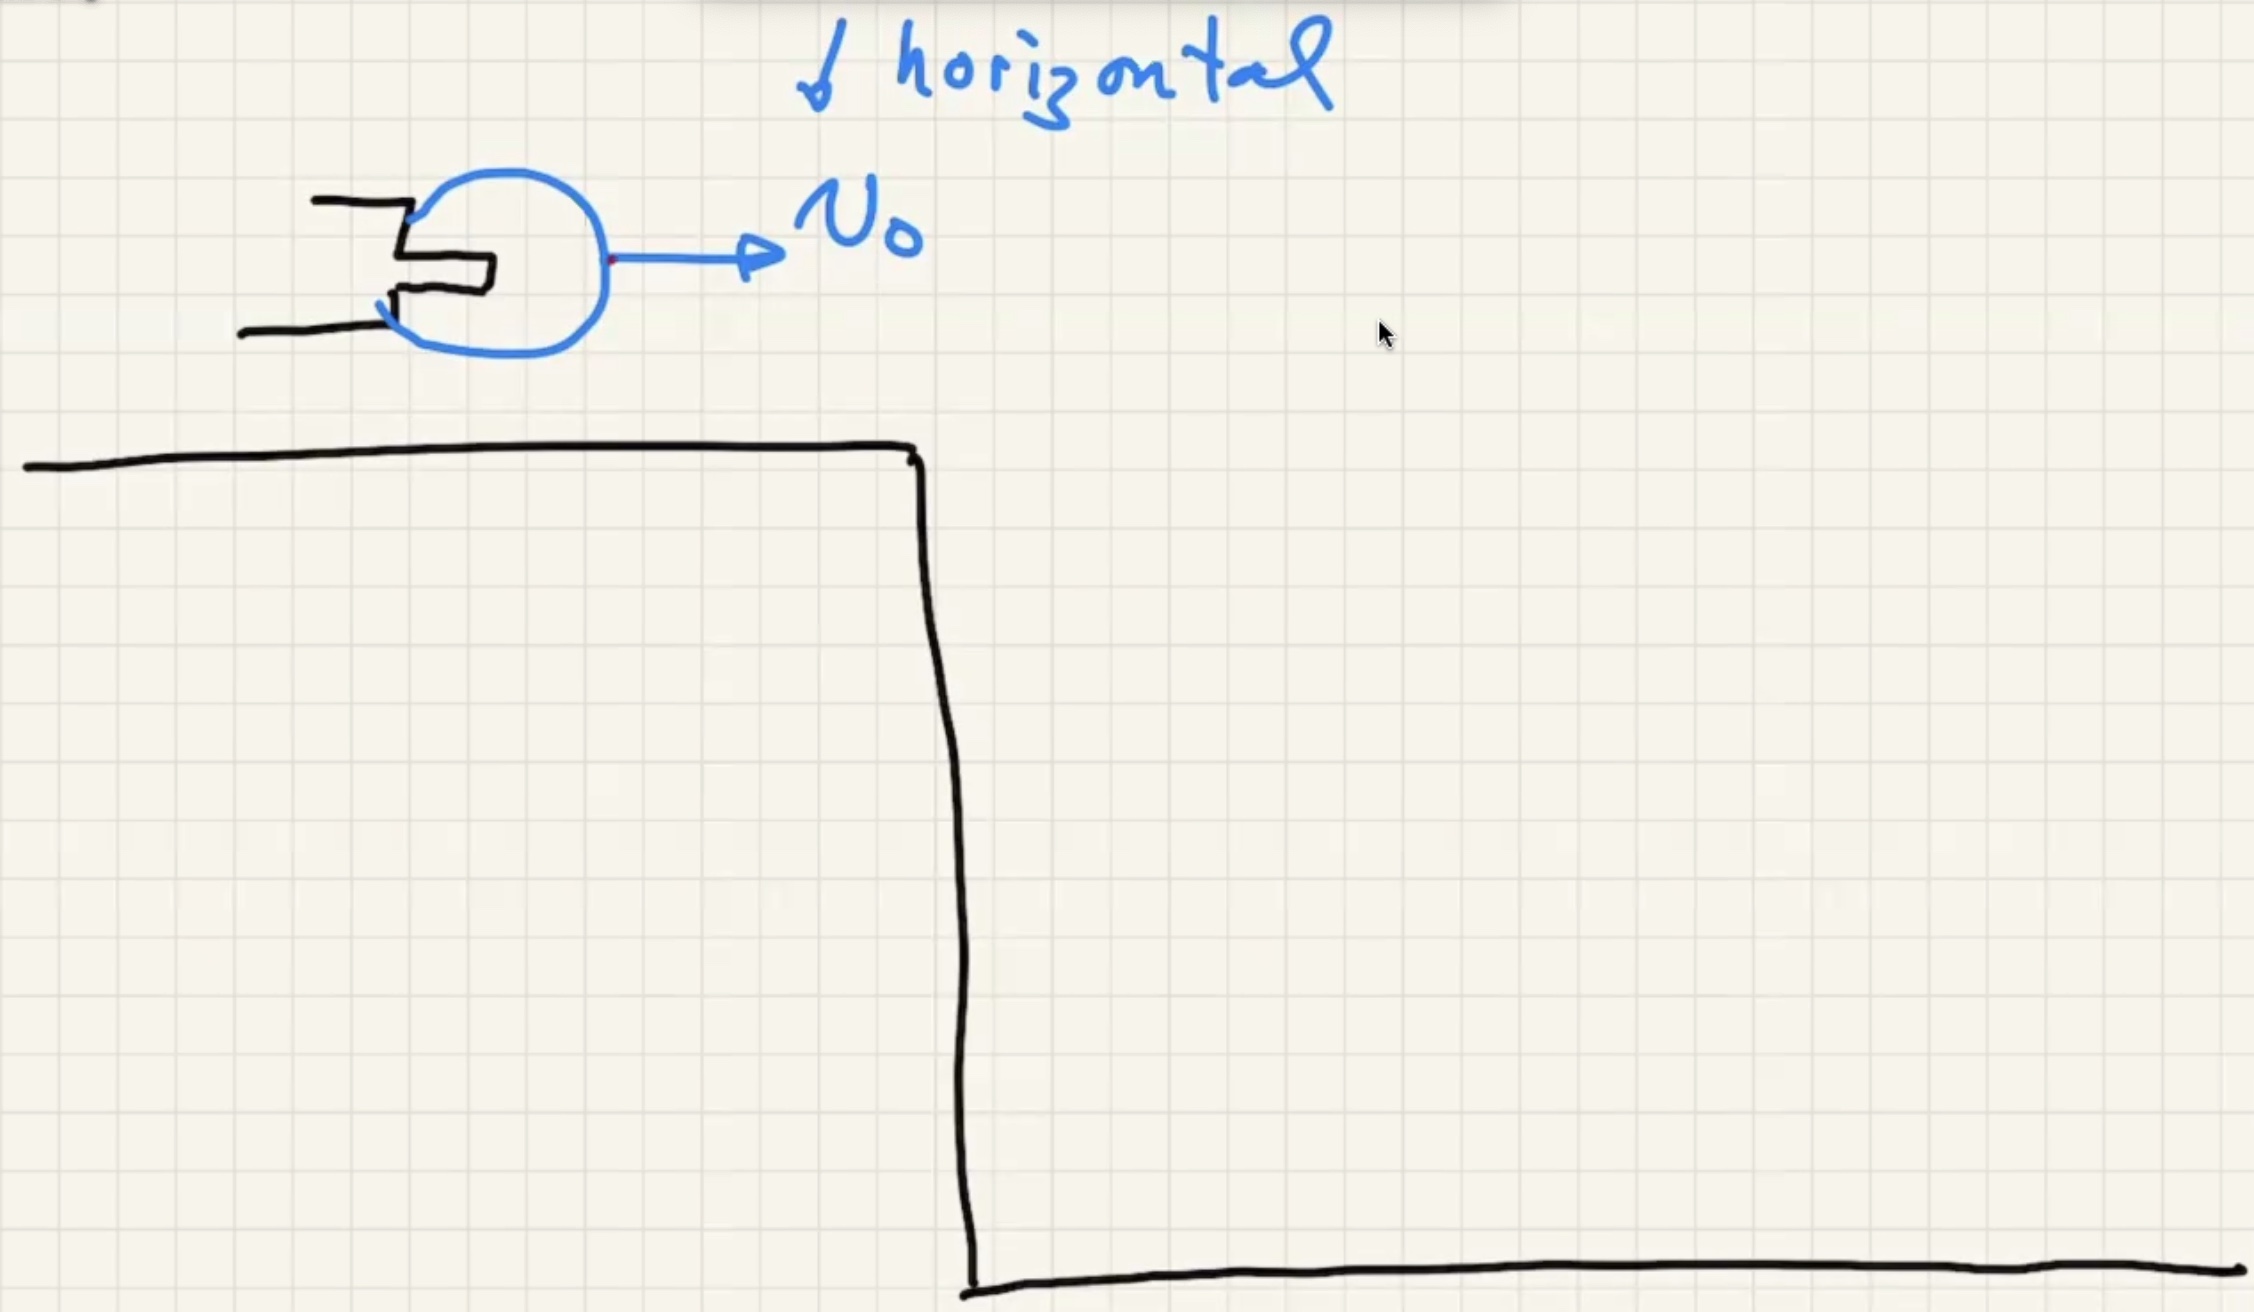 horizontal
v₀